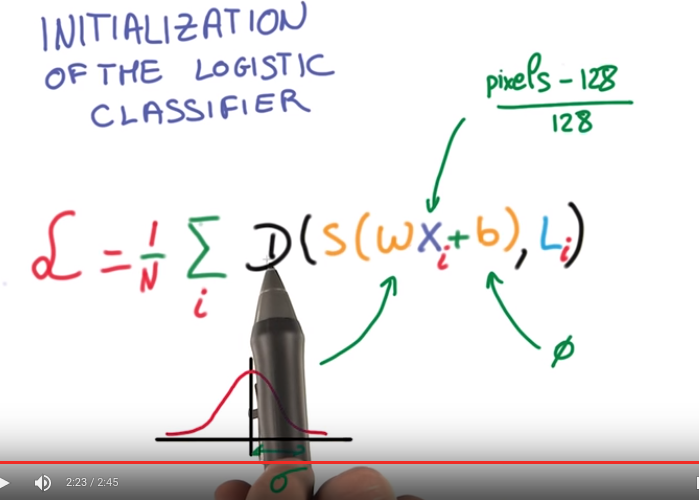 INITIALIZATION
OF THE LOGISTIC
CLASSIFIER
pixels - 128
128
ℒ = 1/N Σ i D(S(wXi+b), Li)
φ
σ
2:23 / 2:45